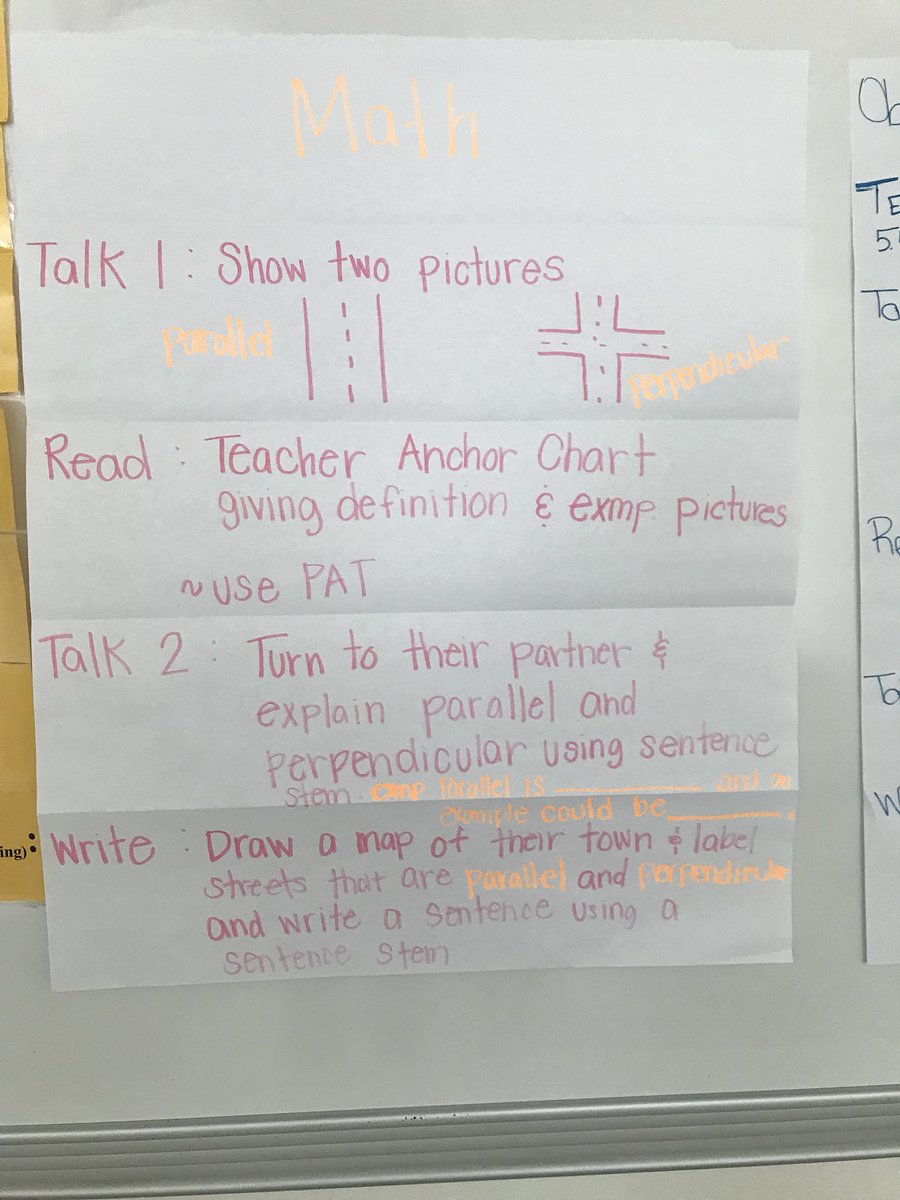 Math
Talk 1: Show two pictures
Parallel
perpendicular
Read: Teacher Anchor Chart
giving definition & exmp. pictures
~use PAT
Talk 2: Turn to their partner &
explain parallel and
perpendicular using sentence
stem. Parallel is ________ and an
example could be ________.
Write: Draw a map of their town & label
streets that are parallel and perpendicular
and write a sentence using a
sentence stem
ing)
Ob
TE
5.
Ta
Re
Ta
W